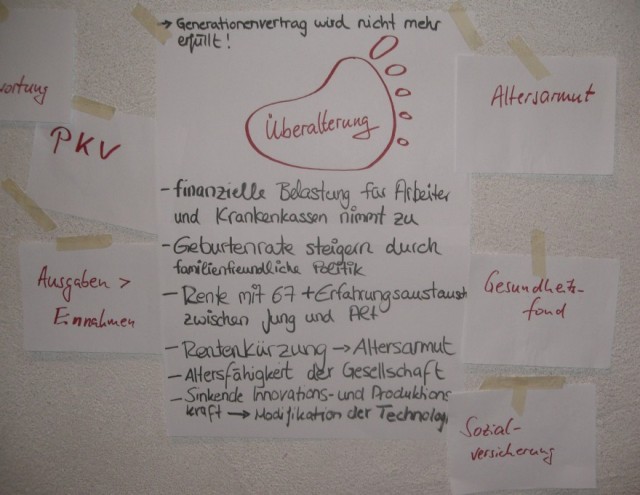 → Generationenvertrag wird nicht mehr
erfüllt!
Überalterung
- finanzielle Belastung für Arbeiter
und Krankenkassen nimmt zu
- Geburtenrate steigern durch
familienfreundliche Politik
- Rente mit 67 + Erfahrungsaustausch
zwischen Jung und Alt
- Rentenkürzung → Altersarmut
- Altersfähigkeit der Gesellschaft
- Sinkende Innovations- und Produktions
kraft → Modifikation der Technologi
wortung
PKV
Ausgaben >
Einnahmen
Altersarmut
Gesundheits-
fond
Sozial-
versicherung